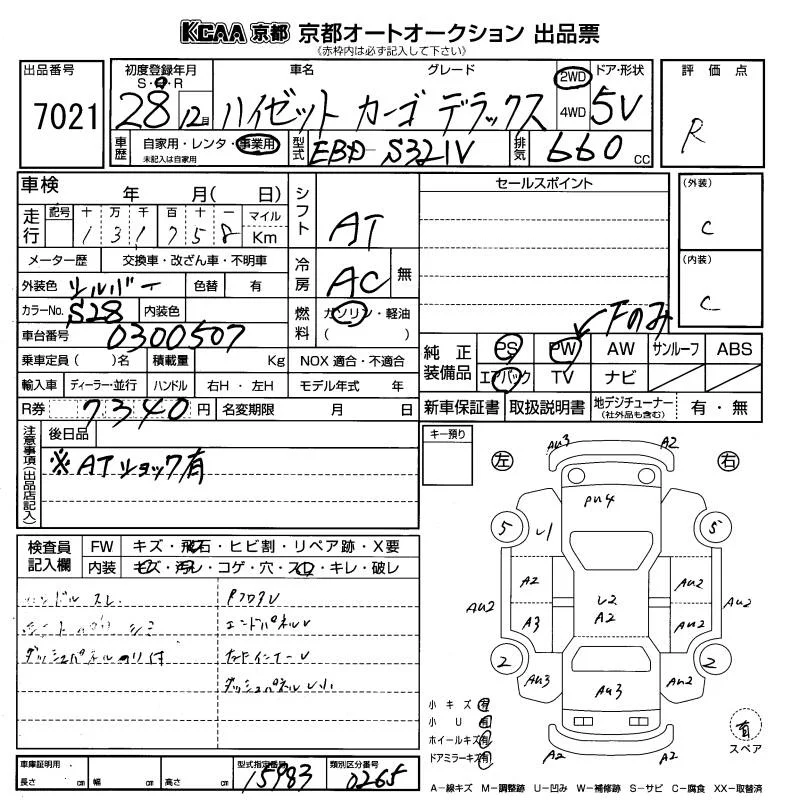 KCAA 京都 京都オートオークション 出品票
《赤枠内は必ず記入して下さい》
出品番号
7021
初度登録年月
S・H・R
28 12月
車名
グレード
ハイゼット カーゴ デラックス
2WD
4WD
ドア・形状
5V
評価点
R
車歴
自家用・レンタ・事業用
未記入は自家用
型式
EBD-S321V
排気
660 CC
車検 年 月( 日)
走行
記号 十 万 千 百 十 一 マイル
1 3 1 7 5 8 Km
メーター歴 交換車・改ざん車・不明車
外装色 シルバー 色替 有
カラーNo. S28 内装色
車台番号 0300507
乗車定員( )名 積載量 Kg
輸入車 ディーラー・並行 ハンドル 右H・左H
R券 7340 円 名変期限 月 日
シフト
AT
冷房
AC 無
燃料
ガソリン・軽油
( )
NOX 適合・不適合
モデル年式 年
セールスポイント
(外装)
C
(内装)
C
Fのみ
純正装備品
PS PW AW サンルーフ ABS
エアバック TV ナビ
新車保証書 取扱説明書 地デジチューナー
(社外品も含む)
有・無
注意事項(出品店記入)
後日品
※ATショック有
キー預り
検査員記入欄
FW キズ・飛石・ヒビ割・リペア跡・X要
内装 キズ・汚レ・コゲ・穴・スレ・キレ・破レ
ハンドル スレ
ダッシュパネルのり付
エンドパネルU
ダッシュパネルU小
左 右
AU3 A2
PU4
5 U1 5
A2 U2 AU2
AU2 A2 AU2
A3 AU2
2 2
AU3 AU3 AU3
A2 A2
小キズ 有
小U 有
ホイールキズ 有
ドアミラーキズ 有
有
スペア
車庫証明用
長さ cm 幅 cm 高さ cm
型式指定番号
15983
類別区分番号
0265
A−線キズ M−調整跡 U−凹み W−補修跡 S−サビ C−腐食 XX−取替済